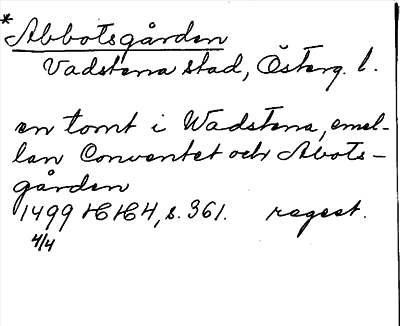 *Abbotsgården
Vadstena stad, Österg. l.
en tomt i Wadstena, emel-
lan Conventet och Abots-
gården
1499 HH4, s. 361. regest.
4/4